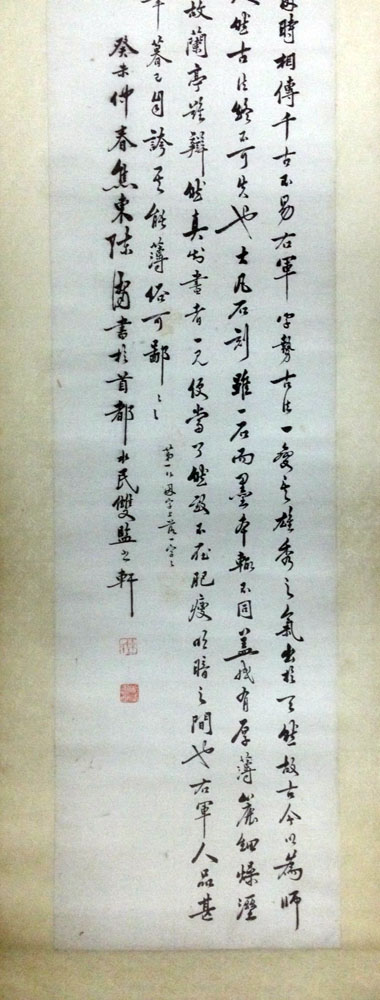 時相傳千古不易右軍字勢古法一變其雄秀之氣出於天然故古今以為師
然古法終不可失也大凡石刻雖一石而墨本輒不同蓋紙有厚薄麤細燥溼
故蘭亭難辯然真知書者一見便當了然政不在肥瘦明暗之間也右軍人品甚
暮已自誇其能薄俗可鄙〻〻
第一行字下落一字
癸未仲春焦東陳書於首都水民雙監之軒